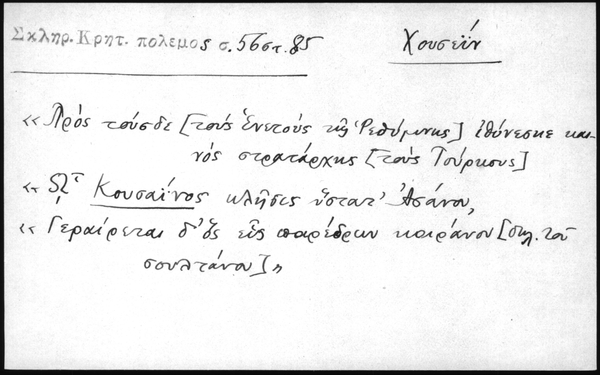 Σκληρ. Κρητ. πολεμος σ. 56 στ. 85
Χουσεΐν
«Πρὸς τούσδε [τοὺς Ἑνετοὺς τῆς Ρεθύμνης] ἰθύνεσκε και-
νὸς στρατάρχης [τοὺς Τούρκους]
«ᾯτ Κουσαΐνος κλῆσις ὕστατ' Ἀσάνου,
«Γεραίρεται δ' ὃς εἷς παρέδρων κοιράνου [σκλ. τοῦ
σουλτάνου]»